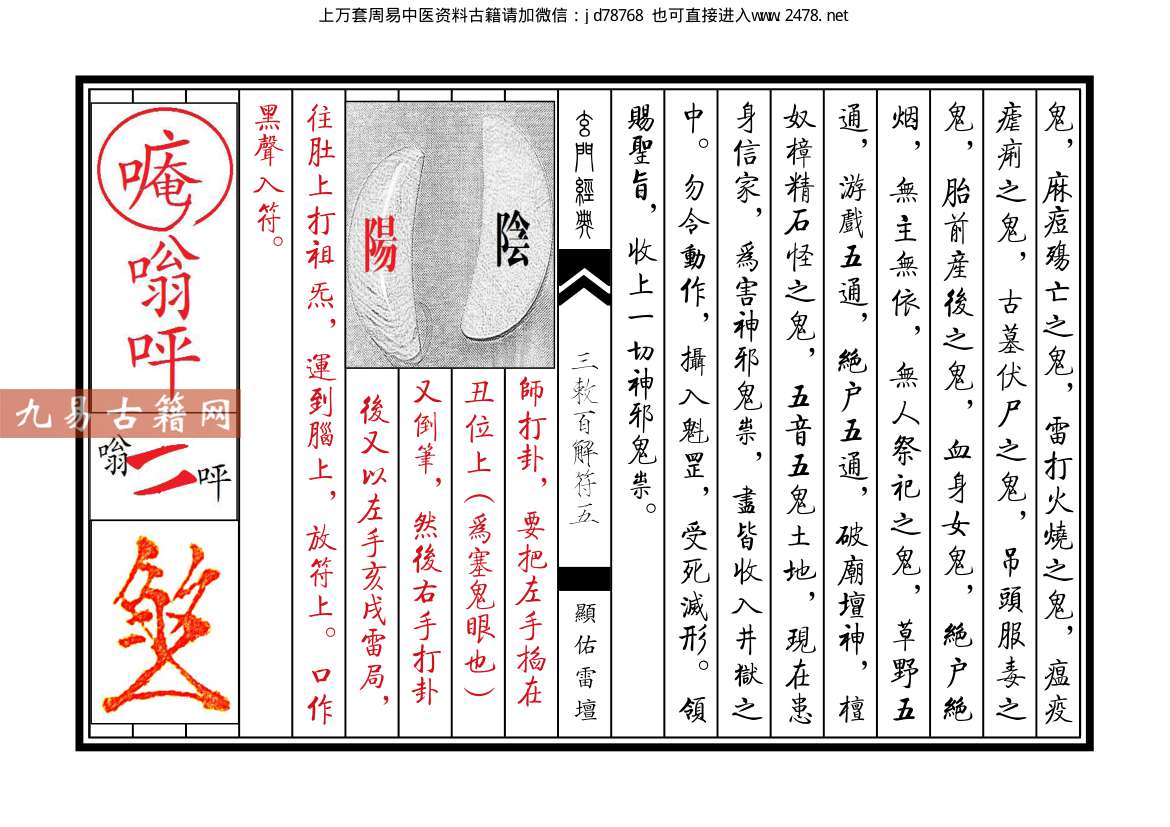 上万套周易中医资料古籍请加微信：jd78768 也可直接进入www.2478.net
鬼，麻痘殤亡之鬼，雷打火燒之鬼，瘟疫
瘧痢之鬼，古墓伏尸之鬼，吊頭服毒之
鬼，胎前産後之鬼，血身女鬼，絕户絕
烟，無主無依，無人祭祀之鬼，草野五
通，游戲五通，絕户五通，破廟壇神，檀
奴樟精石怪之鬼，五音五鬼土地，現在患
身信家，爲害神邪鬼祟，盡皆收入井獄之
中。勿令動作，攝入魁罡，受死滅形。領
賜聖旨，收上一切神邪鬼祟。
玄門經典
三敕百解符五
顯佑雷壇
陰
陽
師打卦，要把左手掐在
丑位上（爲塞鬼眼也）
又倒筆，然後右手打卦
後又以左手亥戌雷局，
往肚上打祖炁，運到腦上，放符上。口作
黑聲入符。
唵
嗡
呯
嗡
呯
九易古籍网